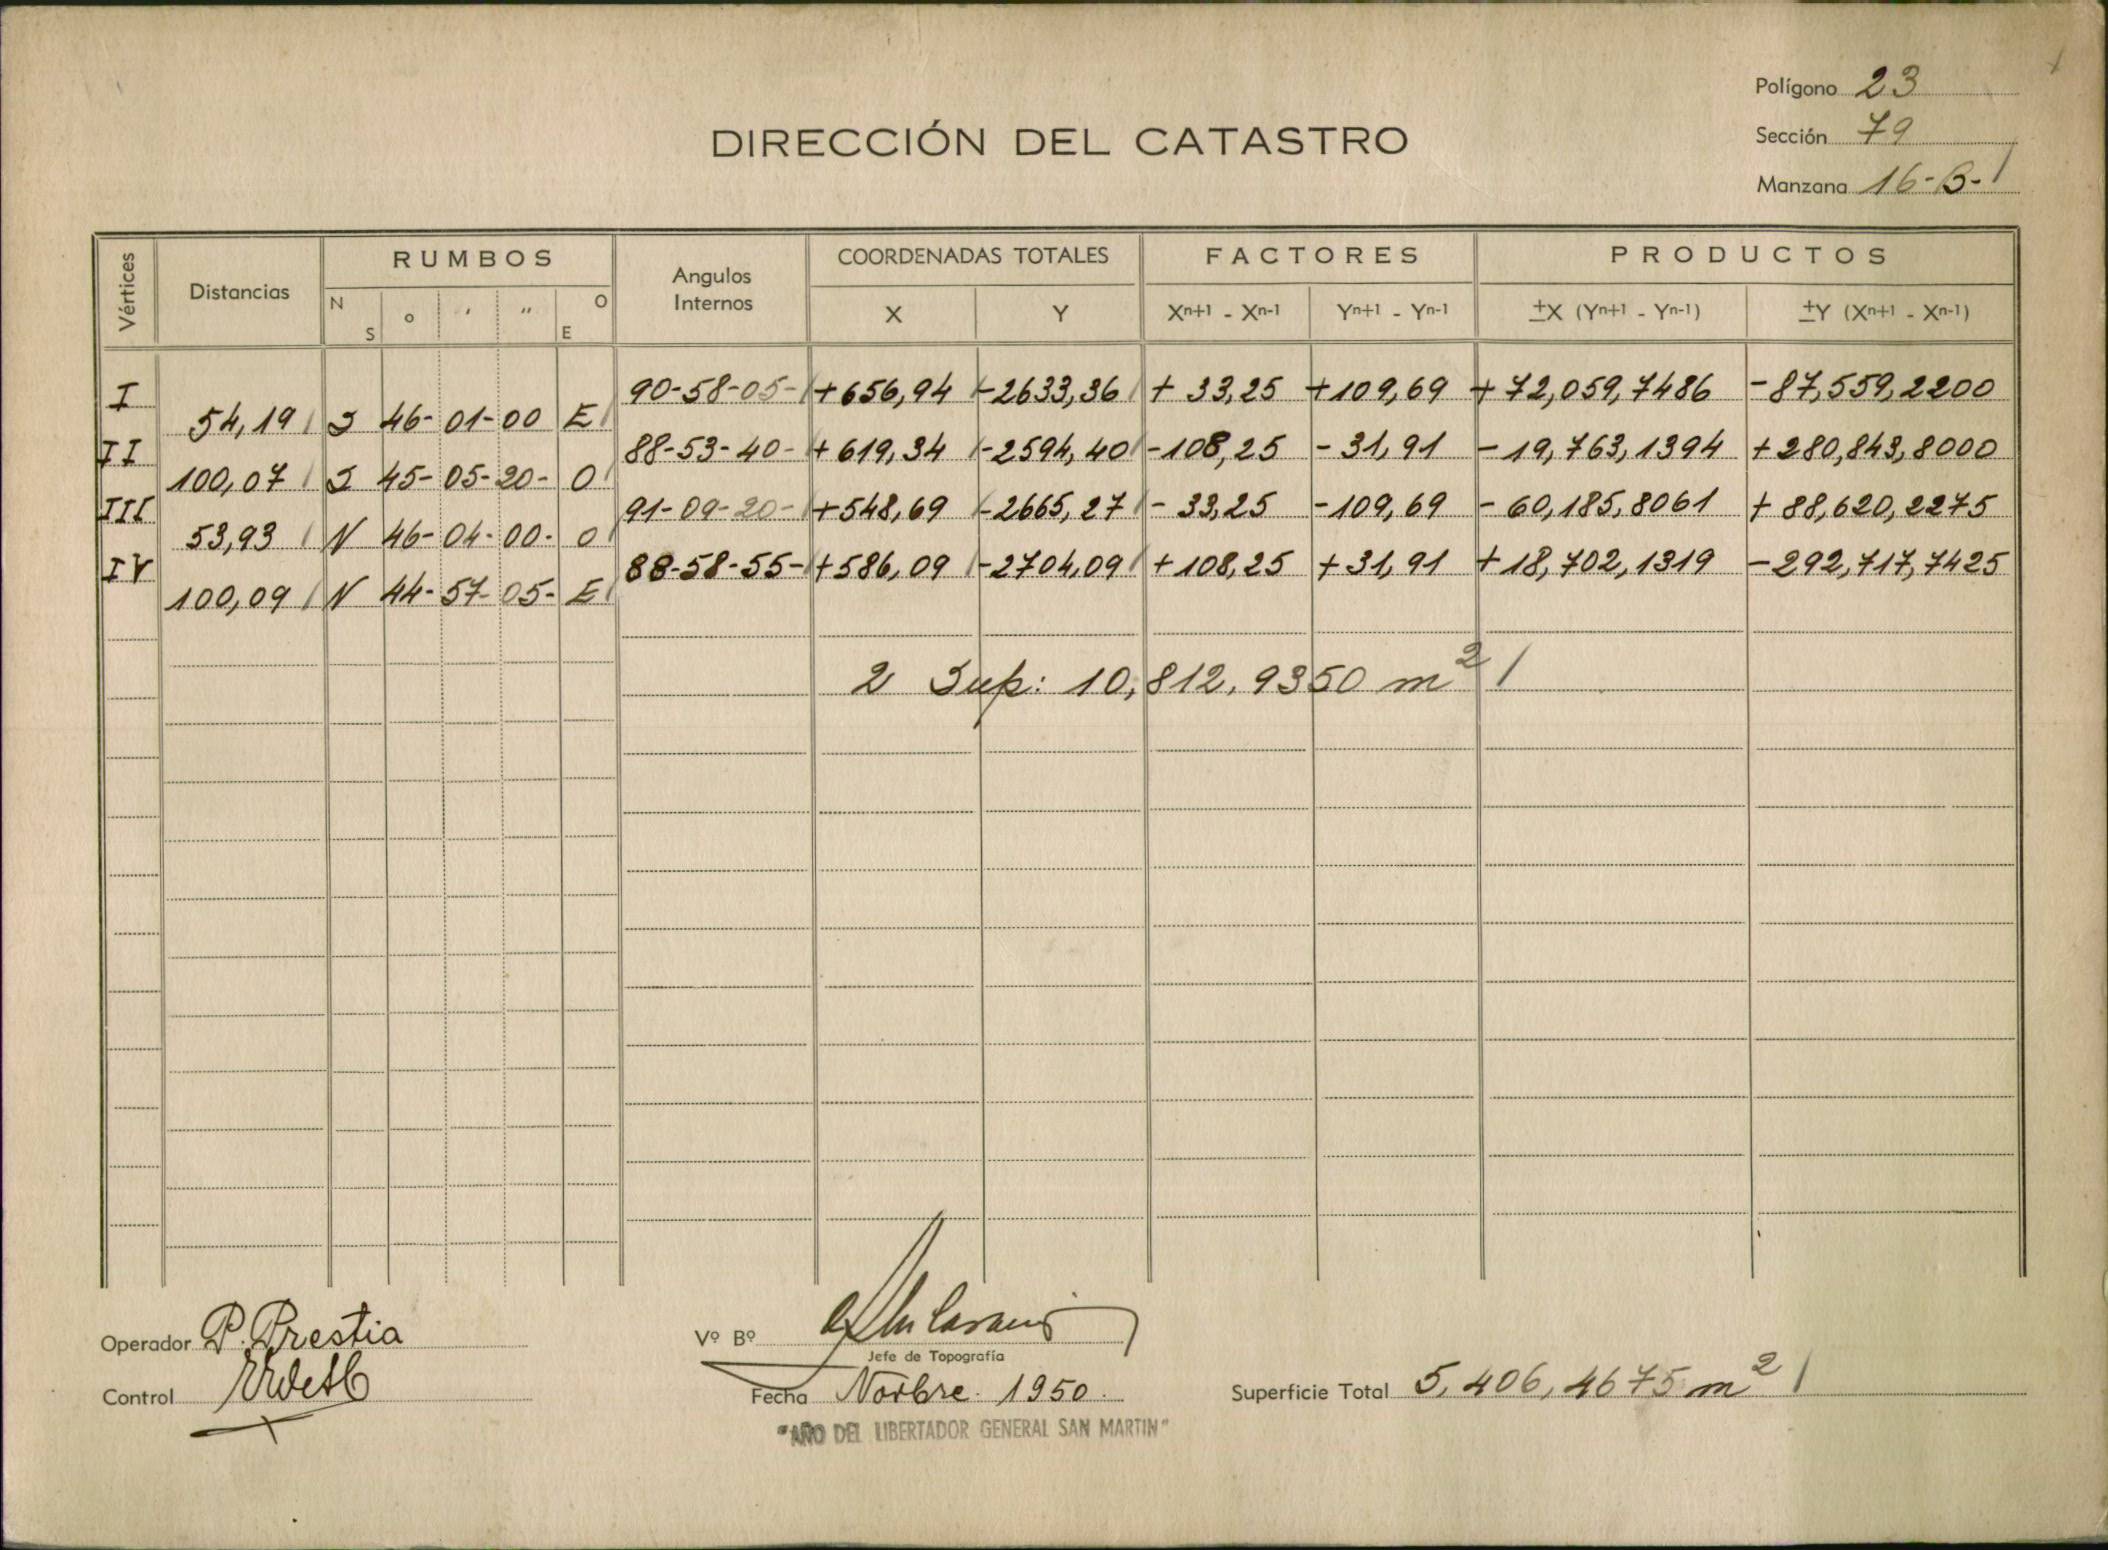 Polígono 23
DIRECCIÓN DEL CATASTRO
Sección 79
Manzana 16-B-
Vértices Distancias RUMBOS Angulos Internos COORDENADAS TOTALES FACTORES PRODUCTOS
N S o ' " O E X Y Xn+1 - Xn-1 Yn+1 - Yn-1 ±X (Yn+1 - Yn-1) ±Y (Xn+1 - Xn-1)
I 90-58-05- +656,94 -2633,36 + 33,25 +109,69 +72,059,7486 -87,559,2200
54,19 S 46-01-00 E
II 88-53-40- +619,34 -2594,40 -108,25 -31,91 -19,763,1394 +280,843,8000
100,07 S 45-05-20- O
III 91-09-20- +548,69 -2665,27 -33,25 -109,69 -60,185,8061 +88,620,2275
53,93 N 46-04-00- O
IV 88-58-55- +586,09 -2704,09 +108,25 +31,91 +18,702,1319 -292,717,7425
100,09 N 44-57-05- E
2 Sup: 10,812,9350 m2
Operador P. Prestia
Vº Bº
Jefe de Topografía
Control
Fecha Novbre. 1950.
Superficie Total 5,406,4675 m2
"AÑO DEL LIBERTADOR GENERAL SAN MARTIN"